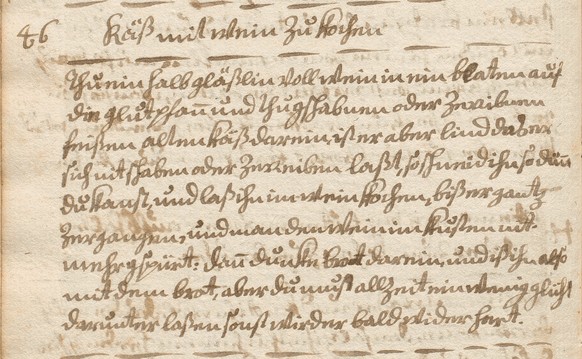 86 Käß mit wein Zu kochen
Thu ein halb gläßlin voll wein in ein blaten auf
die glutpfann und thu gschabnen oder Zerribnen
feißen alten käß darein, ist er aber lind daß er
sich nit schaben oder Zerreiben laßt, so schneid ihn so dünn
du kanst, und laß ihn im wein kochen, biß er gantz
Zergangen, und man den wein im kusten nit
mehr gspürt: dann dunke brot darein, und iß ihn also
mit dem brot, aber du must allzeit ein wenig glüht
darunter laßen sonst wird er bald wider hert.